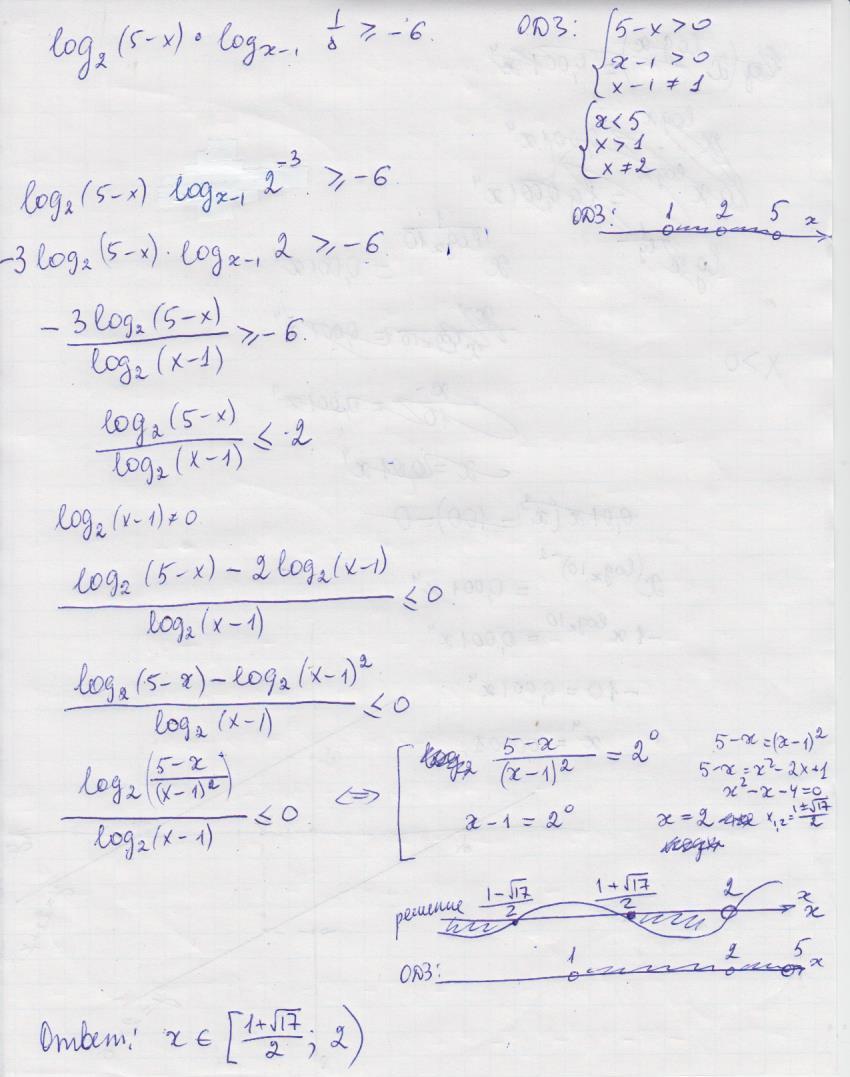 log₂ (5-x) · log_{x-1} 1/8 ≥ -6.
ОДЗ: { 5-x > 0
x-1 > 0
x-1 ≠ 1
{ x < 5
x > 1
x ≠ 2
ОДЗ: 1 2 5 x
log₂ (5-x) log_{x-1} 2⁻³ ≥ -6
-3 log₂ (5-x) · log_{x-1} 2 ≥ -6
- 3 log₂ (5-x) / log₂ (x-1) ≥ -6.
log₂ (5-x) / log₂ (x-1) ≤ 2
log₂ (x-1) ≠ 0
log₂ (5-x) - 2 log₂ (x-1) / log₂ (x-1) ≤ 0
log₂ (5-x) - log₂ (x-1)² / log₂ (x-1) ≤ 0
log₂ ((5-x) / (x-1)²) / log₂ (x-1) ≤ 0 ⇔ [ (5-x) / (x-1)² = 2⁰
x-1 = 2⁰ x = 2
5-x = (x-1)²
5-x = x² - 2x + 1
x² - x - 4 = 0
x₁,₂ = (1±√17) / 2
решение (1-√17)/2 (1+√17)/2 2 x
x
ОДЗ: 1 2 5 x
Ответ: x ∈ [(1+√17)/2 ; 2)